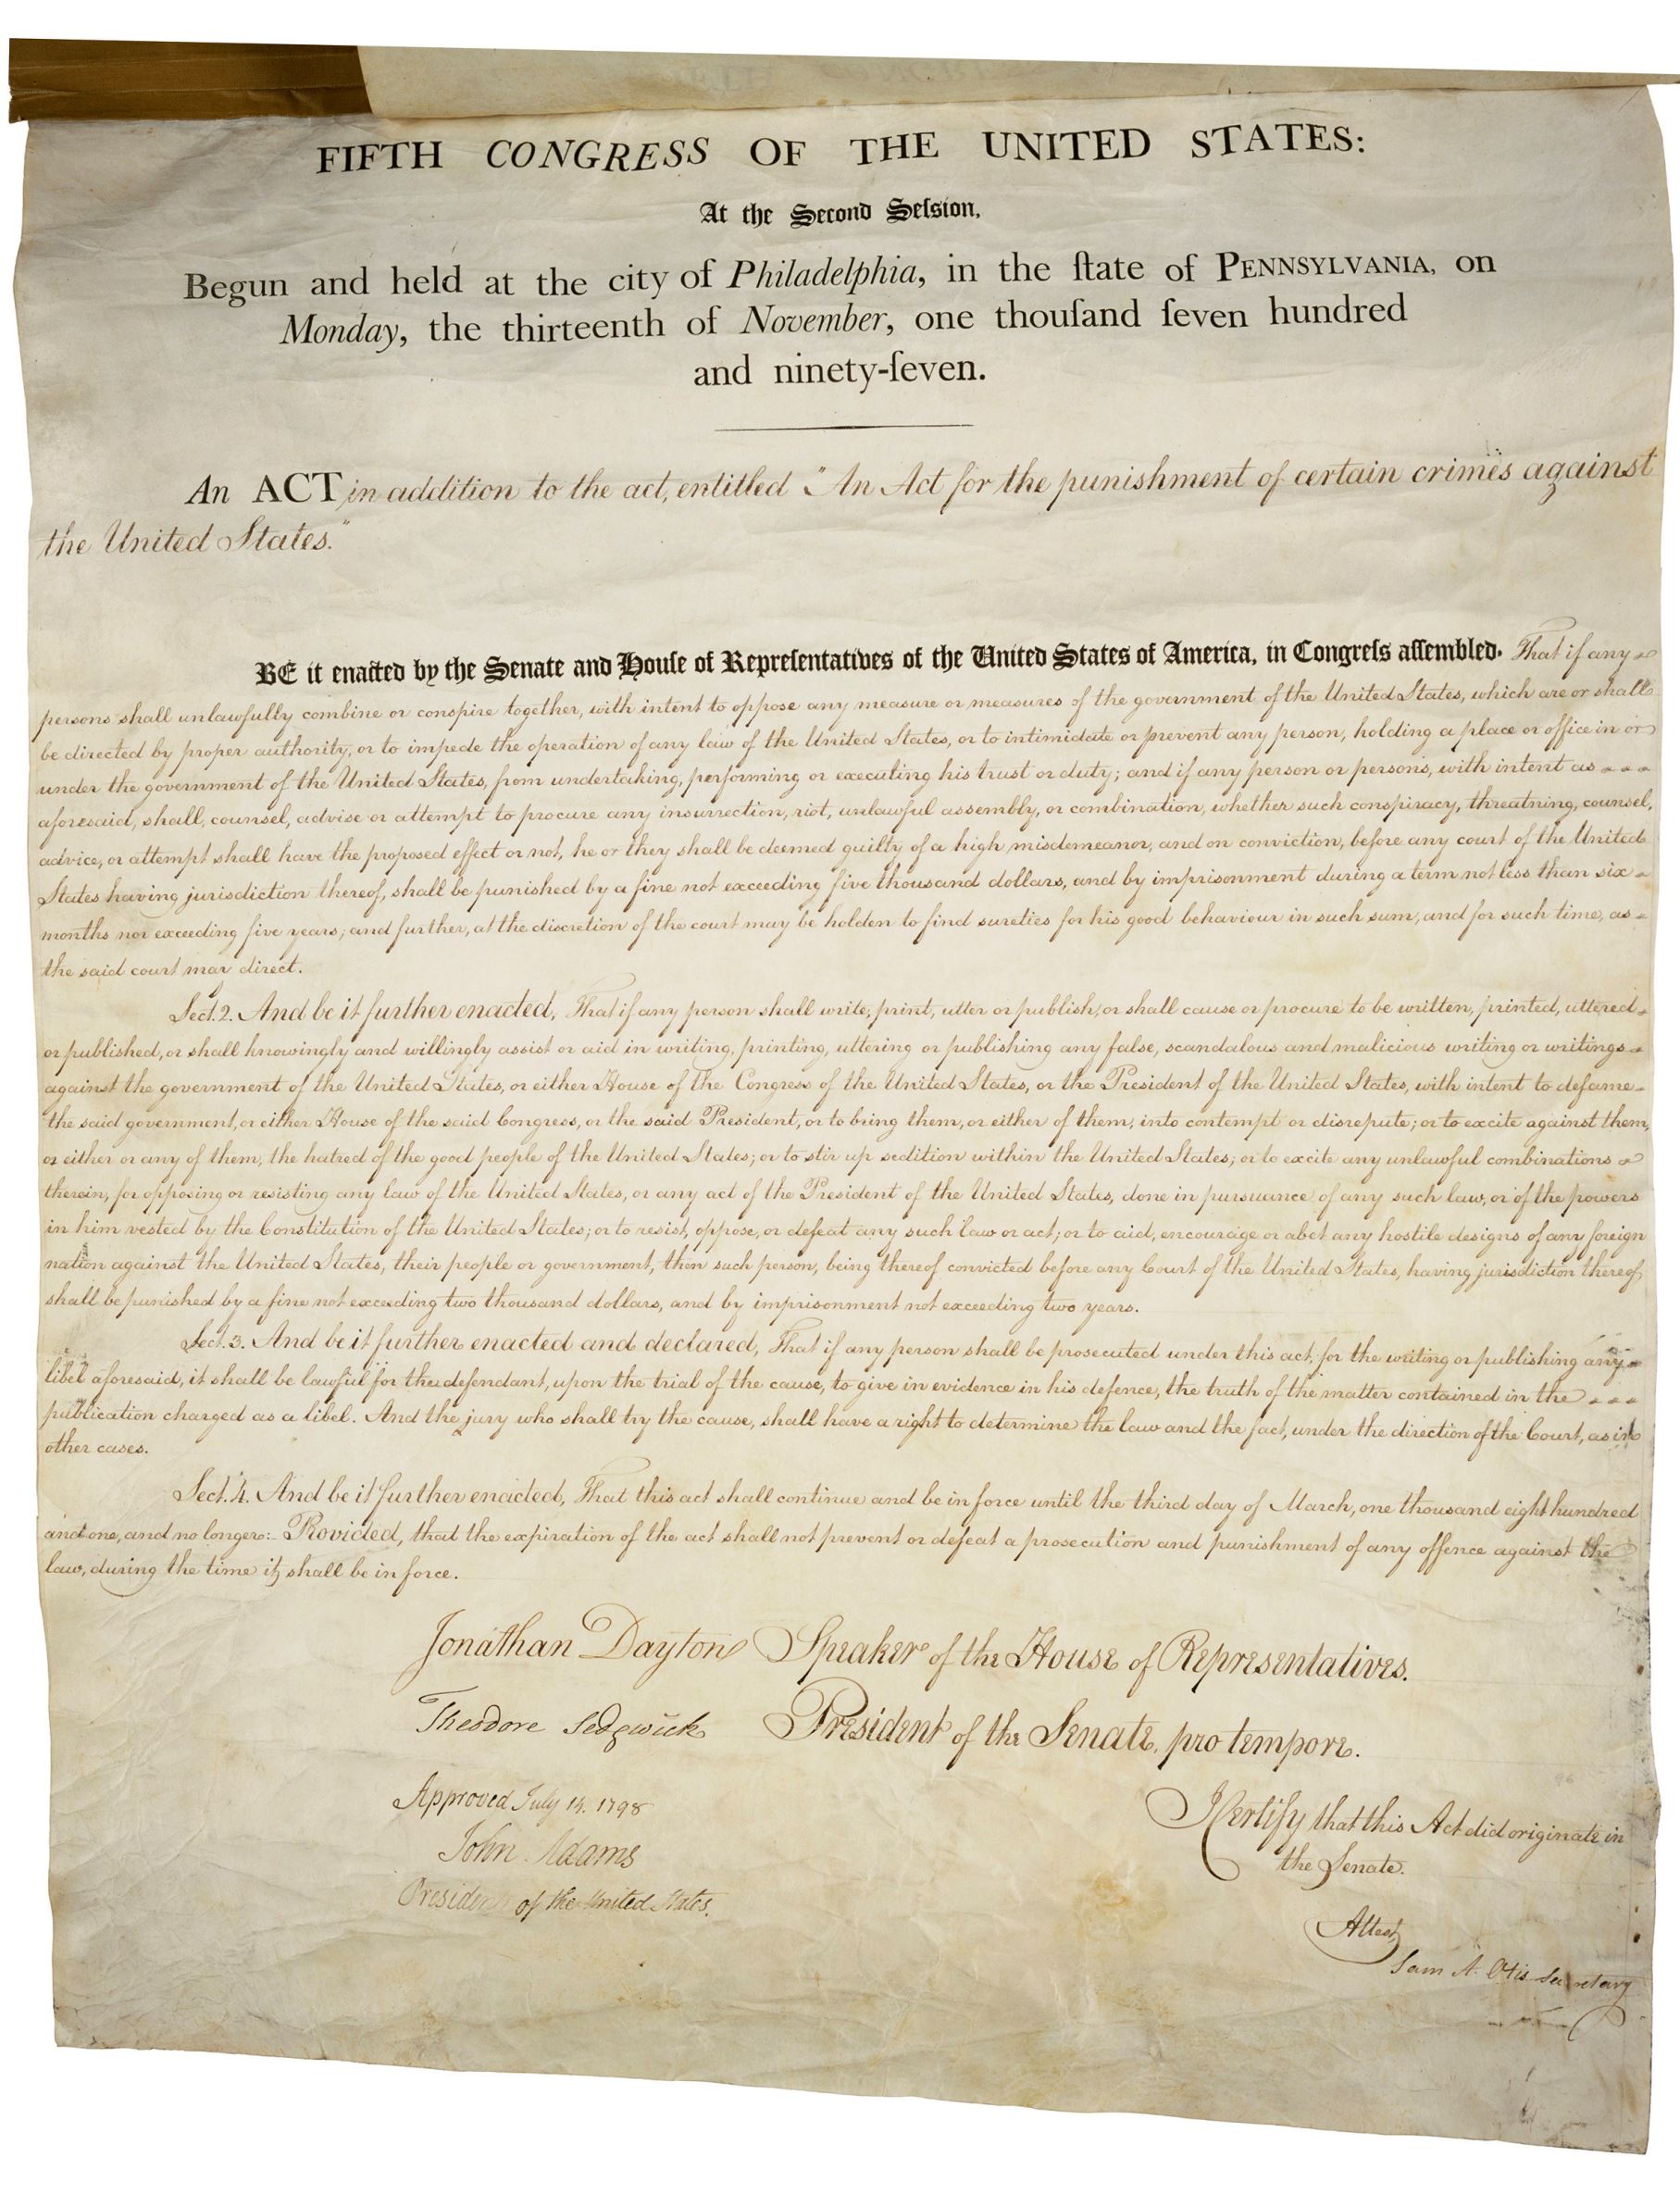 FIFTH CONGRESS OF THE UNITED STATES:
At the Second Seſsion,
Begun and held at the city of Philadelphia, in the ſtate of PENNSYLVANIA, on
Monday, the thirteenth of November, one thouſand ſeven hundred
and ninety-ſeven.
An ACT in addition to the act, entitled "An Act for the punishment of certain crimes against
the United States."
BE it enacted by the Senate and Houſe of Repreſentatives of the United States of America, in Congreſs aſſembled. That if any
persons shall unlawfully combine or conspire together, with intent to oppose any measure or measures of the government of the United States, which are or shall
be directed by proper authority, or to impede the operation of any law of the United States, or to intimidate or prevent any person, holding a place or office in or
under the government of the United States, from undertaking, performing or executing his trust or duty; and if any person or persons, with intent as
aforesaid, shall, counsel, advise or attempt to procure any insurrection, riot, unlawful assembly, or combination, whether such conspiracy, threatning, counsel,
advice, or attempt shall have the proposed effect or not, he or they shall be deemed guilty of a high misdemeanor, and on conviction, before any court of the United
States having jurisdiction thereof, shall be punished by a fine not exceeding five thousand dollars, and by imprisonment during a term not less than six
months nor exceeding five years; and further, at the discretion of the court may be holden to find sureties for his good behaviour in such sum, and for such time, as
the said court may direct.
Sect. 2. And be it further enacted, That if any person shall write, print, utter or publish, or shall cause or procure to be written, printed, uttered
or published, or shall knowingly and willingly assist or aid in writing, printing, uttering or publishing any false, scandalous and malicious writing or writings
against the government of the United States, or either House of the Congress of the United States, or the President of the United States, with intent to defame
the said government, or either House of the said Congress, or the said President, or to bring them, or either of them, into contempt or disrepute; or to excite against them,
or either or any of them, the hatred of the good people of the United States; or to stir up sedition within the United States; or to excite any unlawful combinations
therein, for opposing or resisting any law of the United States, or any act of the President of the United States, done in pursuance of any such law, or of the powers
in him vested by the Constitution of the United States; or to resist, oppose, or defeat any such law or act; or to aid, encourage or abet any hostile designs of any foreign
nation against the United States, their people or government, then such person, being thereof convicted before any Court of the United States, having jurisdiction thereof,
shall be punished by a fine not exceeding two thousand dollars, and by imprisonment not exceeding two years.
Sect. 3. And be it further enacted and declared, That if any person shall be prosecuted under this act, for the writing or publishing any
libel aforesaid, it shall be lawful for the defendant, upon the trial of the cause, to give in evidence in his defence, the truth of the matter contained in the
publication charged as a libel. And the jury who shall try the cause, shall have a right to determine the law and the fact, under the direction of the Court, as in
other cases.
Sect. 4. And be it further enacted, That this act shall continue and be in force until the third day of March, one thousand eight hundred
and one, and no longer: Provided, that the expiration of the act shall not prevent or defeat a prosecution and punishment of any offence against the
law, during the time it shall be in force.
Jonathan Dayton Speaker of the House of Representatives.
Theodore Sedgwick President of the Senate, pro tempore.
Approved July 14. 1798
John Adams
President of the United States.
I Certify that this Act did originate in
the Senate.
Attest,
Sam A. Otis Secretary